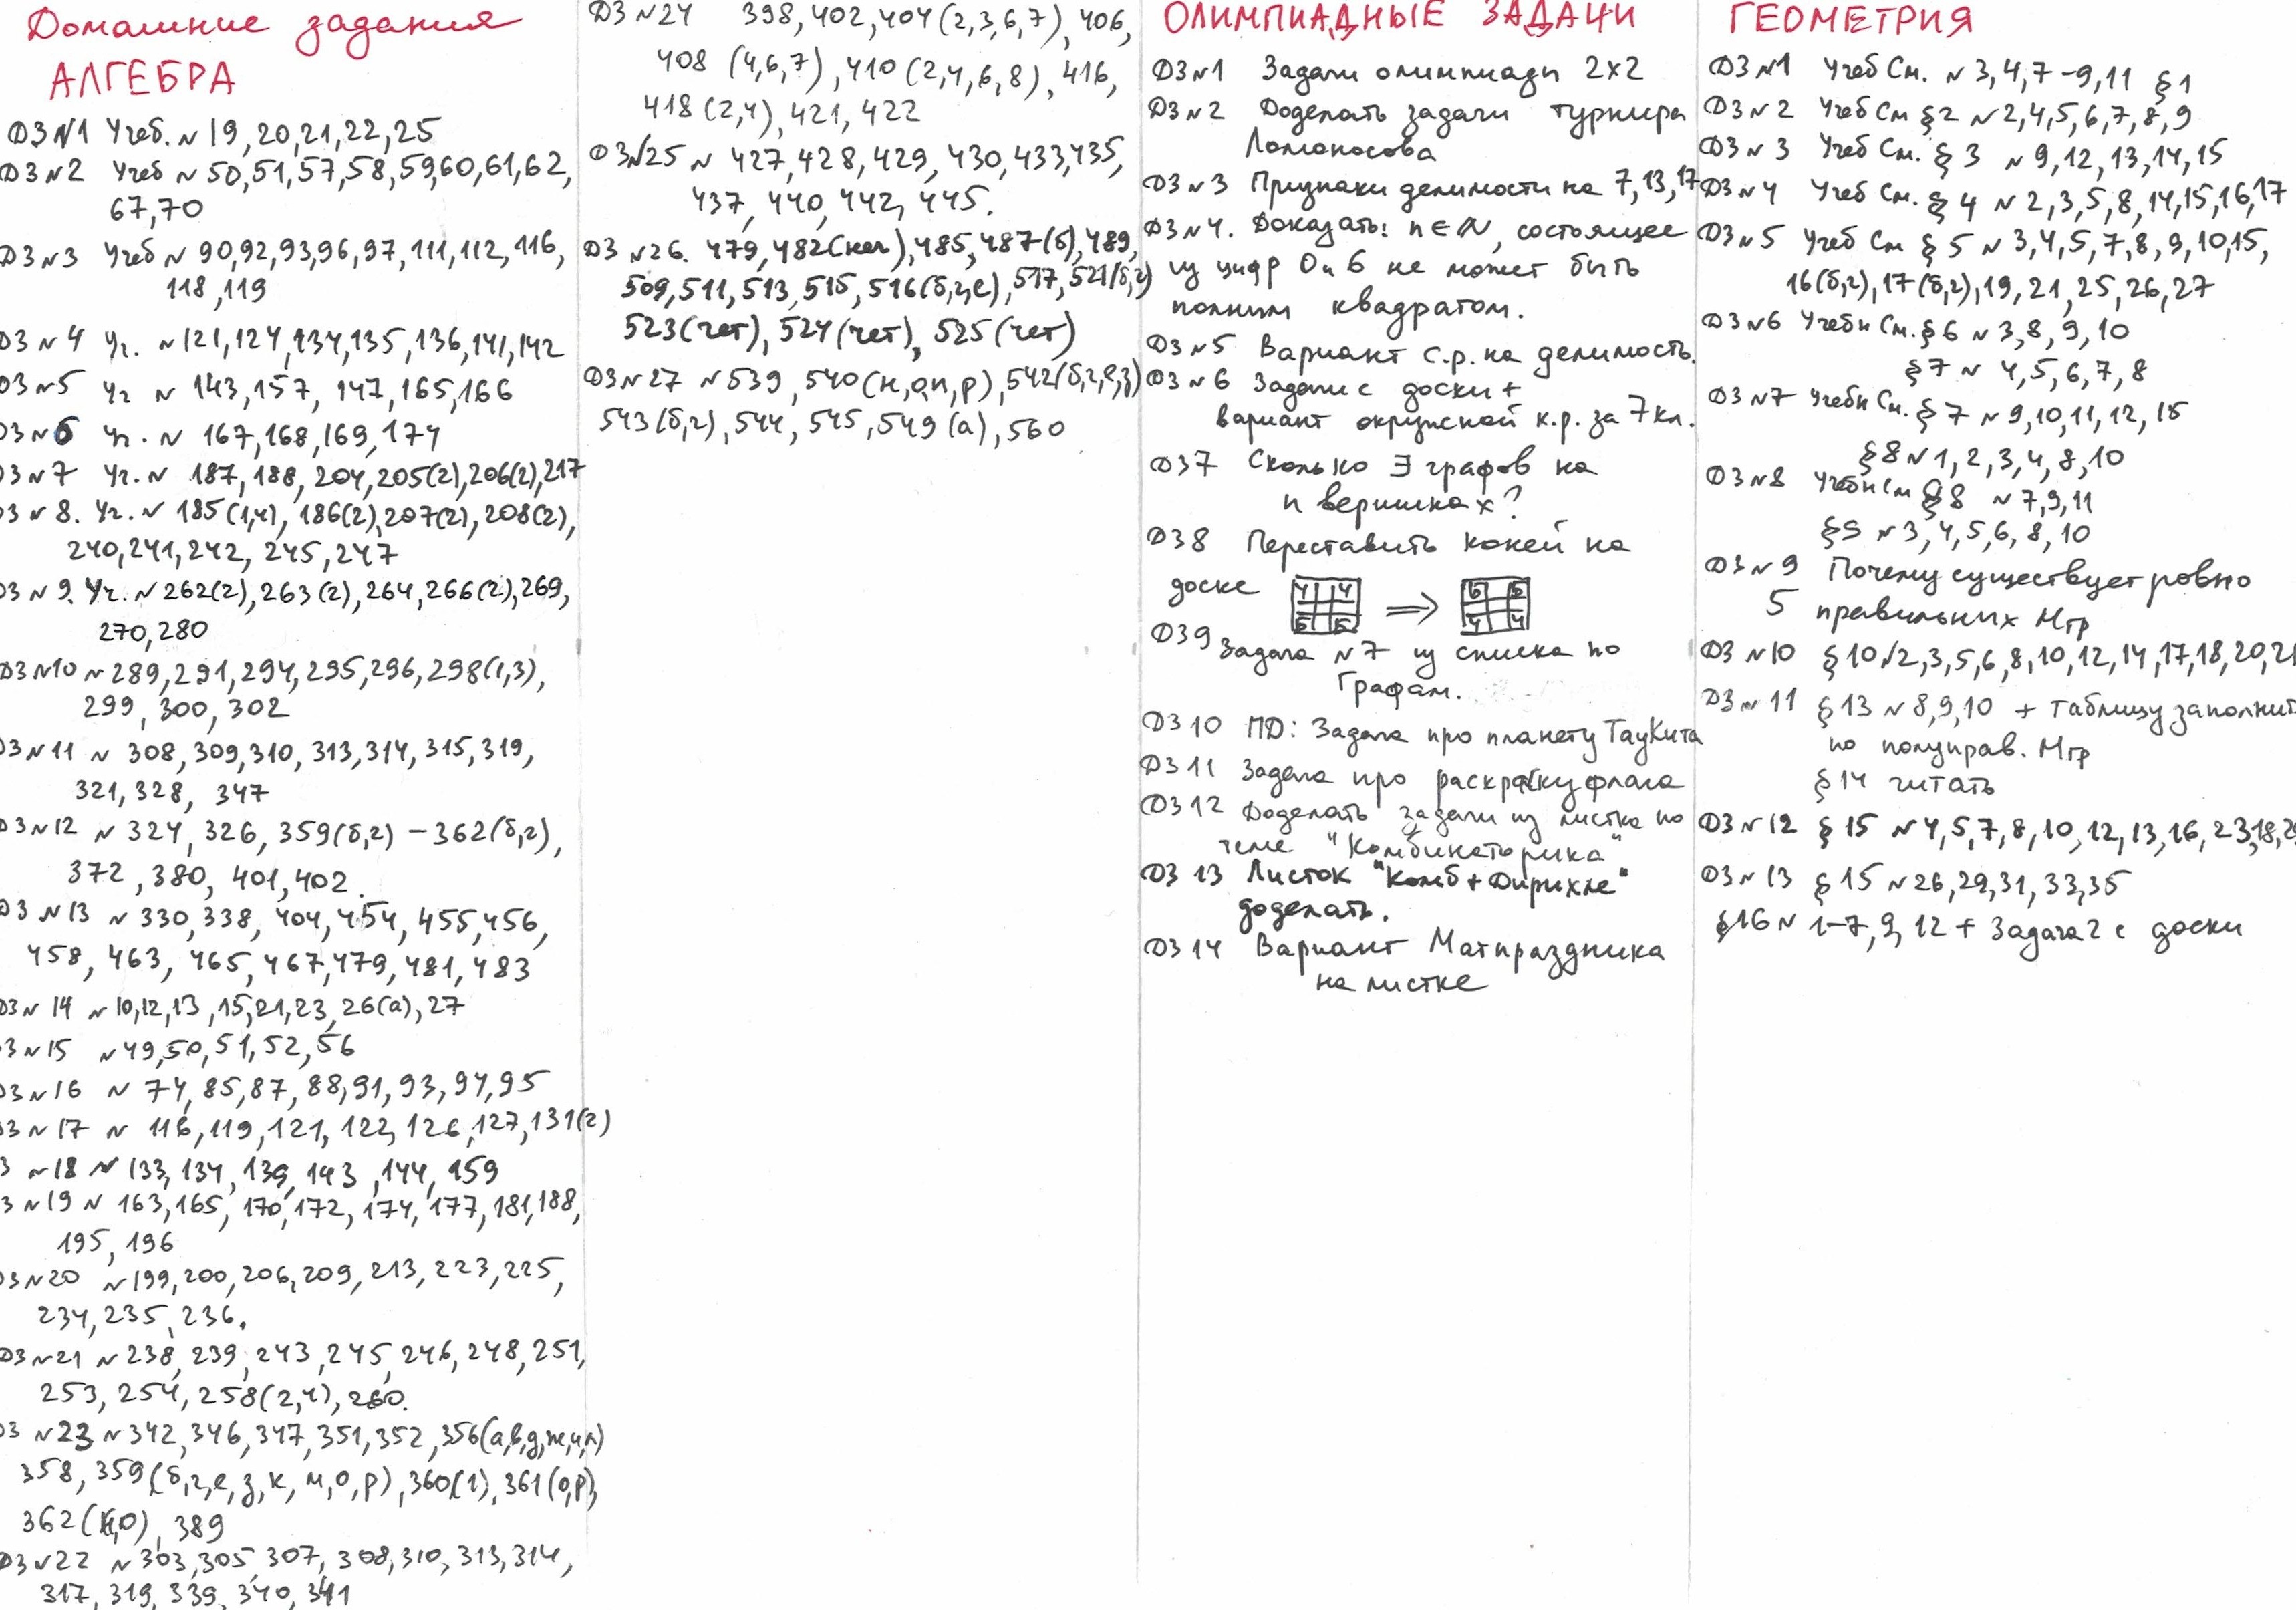 Домашние задания
АЛГЕБРА
ДЗ №1 Учеб. № 19, 20, 21, 22, 25
ДЗ №2 Учеб № 50, 51, 57, 58, 59, 60, 61, 62,
67, 70
ДЗ №3 Учеб № 90, 92, 93, 96, 97, 111, 112, 116,
118, 119
ДЗ №4 Уч. № 121, 124, 134, 135, 136, 141, 142
ДЗ №5 Уч № 143, 157, 147, 165, 166
ДЗ №6 Уч. № 167, 168, 169, 174
ДЗ №7 Уч. № 187, 188, 204, 205(2), 206(2), 217
ДЗ №8. Уч. № 185(1,4), 186(2), 207(2), 208(2),
240, 241, 242, 245, 247
ДЗ №9. Уч. № 262(2), 263(2), 264, 266(2), 269,
270, 280
ДЗ №10 № 289, 291, 294, 295, 296, 298(1,3),
299, 300, 302
ДЗ №11 № 308, 309, 310, 313, 314, 315, 319,
321, 328, 347
ДЗ №12 № 324, 326, 359(б,г) – 362(б,г),
372, 380, 401, 402.
ДЗ №13 № 330, 338, 404, 454, 455, 456,
458, 463, 465, 467, 479, 481, 483
ДЗ №14 № 10, 12, 13, 15, 21, 23, 26(а), 27
ДЗ №15 № 49, 50, 51, 52, 56
ДЗ №16 № 74, 85, 87, 88, 91, 93, 94, 95
ДЗ №17 № 116, 119, 121, 122, 126, 127, 131(2)
ДЗ №18 № 133, 134, 139, 143, 144, 159
ДЗ №19 № 163, 165, 170, 172, 174, 177, 181, 188,
195, 196
ДЗ №20 № 199, 200, 206, 209, 213, 223, 225,
234, 235, 236.
ДЗ №21 № 238, 239, 243, 245, 246, 248, 251,
253, 254, 258(2,4), 260.
ДЗ №23 № 342, 346, 347, 351, 352, 356(а,в,д,ж,и,л)
358, 359(б,г,е,з,к,м,о,р), 360(1), 361(о,р),
362(н,о), 389
ДЗ №22 № 303, 305, 307, 308, 310, 313, 314,
317, 319, 339, 340, 341
ДЗ №24 398, 402, 404(2,3,6,7), 406,
408 (4,6,7), 410(2,4,6,8), 416,
418(2,4), 421, 422
ДЗ №25 № 427, 428, 429, 430, 433, 435,
437, 440, 442, 445.
ДЗ №26. 479, 482(неч), 485, 487(б), 489,
509, 511, 513, 515, 516(б,г,е), 517, 521(б,г)
523(чет), 524(чет), 525(чет)
ДЗ №27 № 539, 540(н,о,п,р), 542(б,г,е,з)
543(б,г), 544, 545, 549(а), 560
ОЛИМПИАДНЫЕ ЗАДАЧИ
ДЗ №1 Задачи олимпиады 2х2
ДЗ №2 Доделать задачи турнира
Ломоносова
ДЗ №3 Признаки делимости на 7, 13, 17
ДЗ №4. Доказать: n∈N, состоящее
из цифр 0 и 6 не может быть
полным квадратом.
ДЗ №5 Вариант с.р. на делимость.
ДЗ №6 Задачи с доски +
вариант окружной к.р. за 7 кл.
ДЗ7 Сколько ∃ графов на
n вершинах?
ДЗ8 Переставить коней на
доске
Ч Ч Б Б
⇒
Б Б Ч Ч
ДЗ9 Задача №7 из списка по
Графам.
ДЗ10 ПД: Задача про планету ТауКита
ДЗ11 Задача про раскраску флага
ДЗ12 Доделать задачи из листка по
теме "Комбинаторика"
ДЗ 13 Листок "Комб + Дирихле"
доделать.
ДЗ 14 Вариант Матпраздника
на листке
ГЕОМЕТРИЯ
ДЗ №1 Учеб См. № 3, 4, 7–9, 11 §1
ДЗ №2 Учеб См §2 № 2, 4, 5, 6, 7, 8, 9
ДЗ №3 Учеб См. §3 № 9, 12, 13, 14, 15
ДЗ №4 Учеб См. §4 № 2, 3, 5, 8, 14, 15, 16, 17
ДЗ №5 Учеб См §5 № 3, 4, 5, 7, 8, 9, 10, 15,
16(б,г), 17(б,г), 19, 21, 25, 26, 27
ДЗ №6 Учебн См. §6 № 3, 8, 9, 10
§7 № 4, 5, 6, 7, 8
ДЗ №7 Учебн См. §7 № 9, 10, 11, 12, 15
§8 № 1, 2, 3, 4, 8, 10
ДЗ №8 Учебн См §8 № 7, 9, 11
§9 № 3, 4, 5, 6, 8, 10
ДЗ №9 Почему существует ровно
5 правильных Мгр
ДЗ №10 §10 № 2, 3, 5, 6, 8, 10, 12, 14, 17, 18, 20, 21
ДЗ №11 §13 № 8, 9, 10 + таблицу заполнит
по полуправ. Мгр
§14 читать
ДЗ №12 §15 № 4, 5, 7, 8, 10, 12, 13, 16, 23, 18,
ДЗ №13 §15 № 26, 29, 31, 33, 35
§16 № 1–7, 9, 12 + Задача 2 с доски